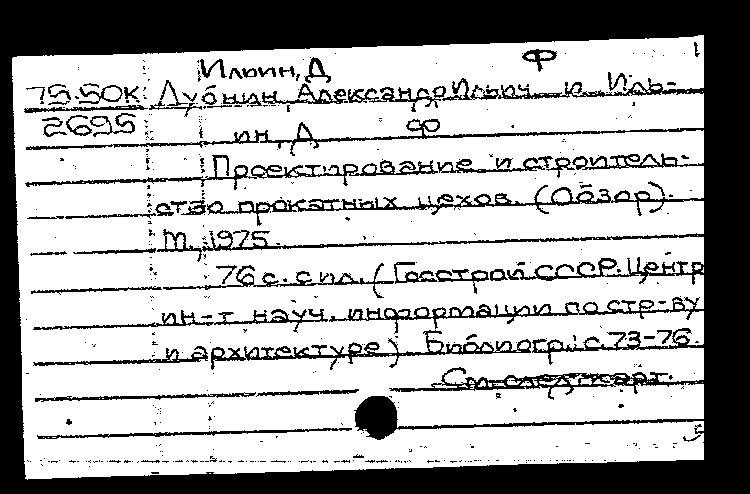 Ильин, Д Ф 1
75.50К Лубнин, Александр Ильич и Иль-
2695 ин, Д Ф
Проектирование и строитель-
ство прокатных цехов. (Обзор).
М., 1975.
76 с. с ил. (Госстрой СССР. Центр
ин-т науч. информации по стр-ву
и архитектуре) Библиогр.: с. 73-76.
См. след. карт.
5